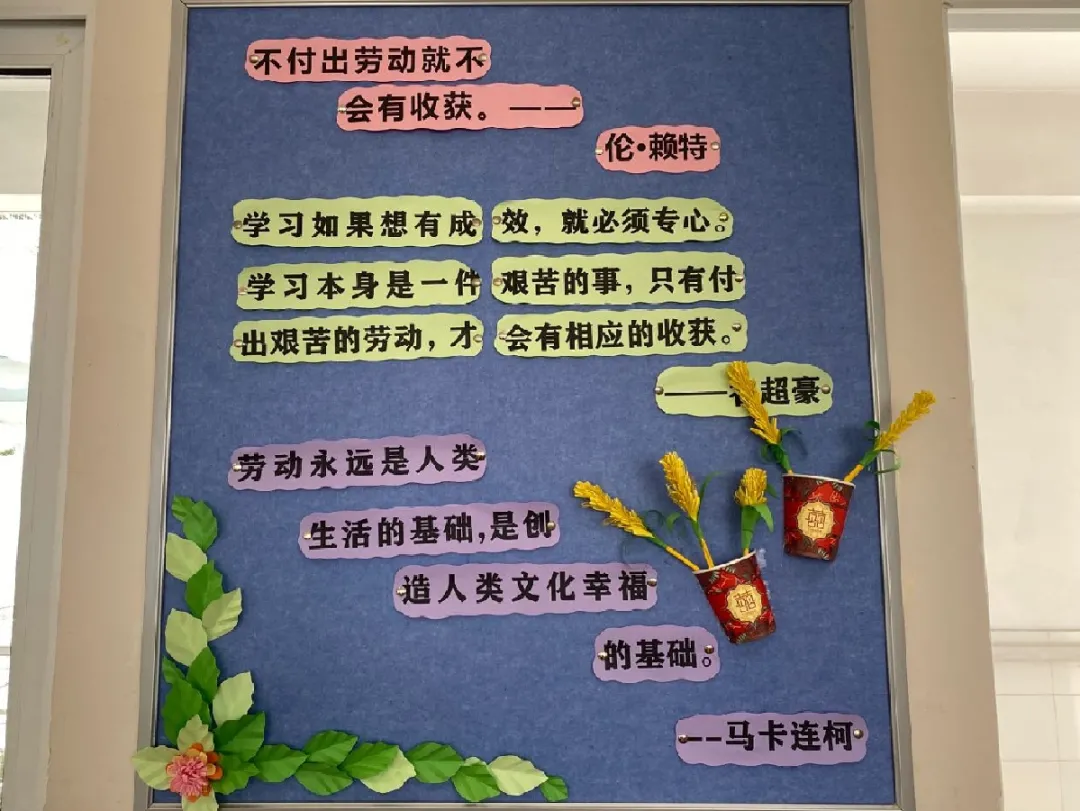 不付出劳动就不
会有收获。——
伦·赖特
学习如果想有成效，就必须专心。
学习本身是一件艰苦的事，只有付
出艰苦的劳动，才会有相应的收获。
——超豪
劳动永远是人类
生活的基础,是创
造人类文化幸福
的基础。
--马卡连柯